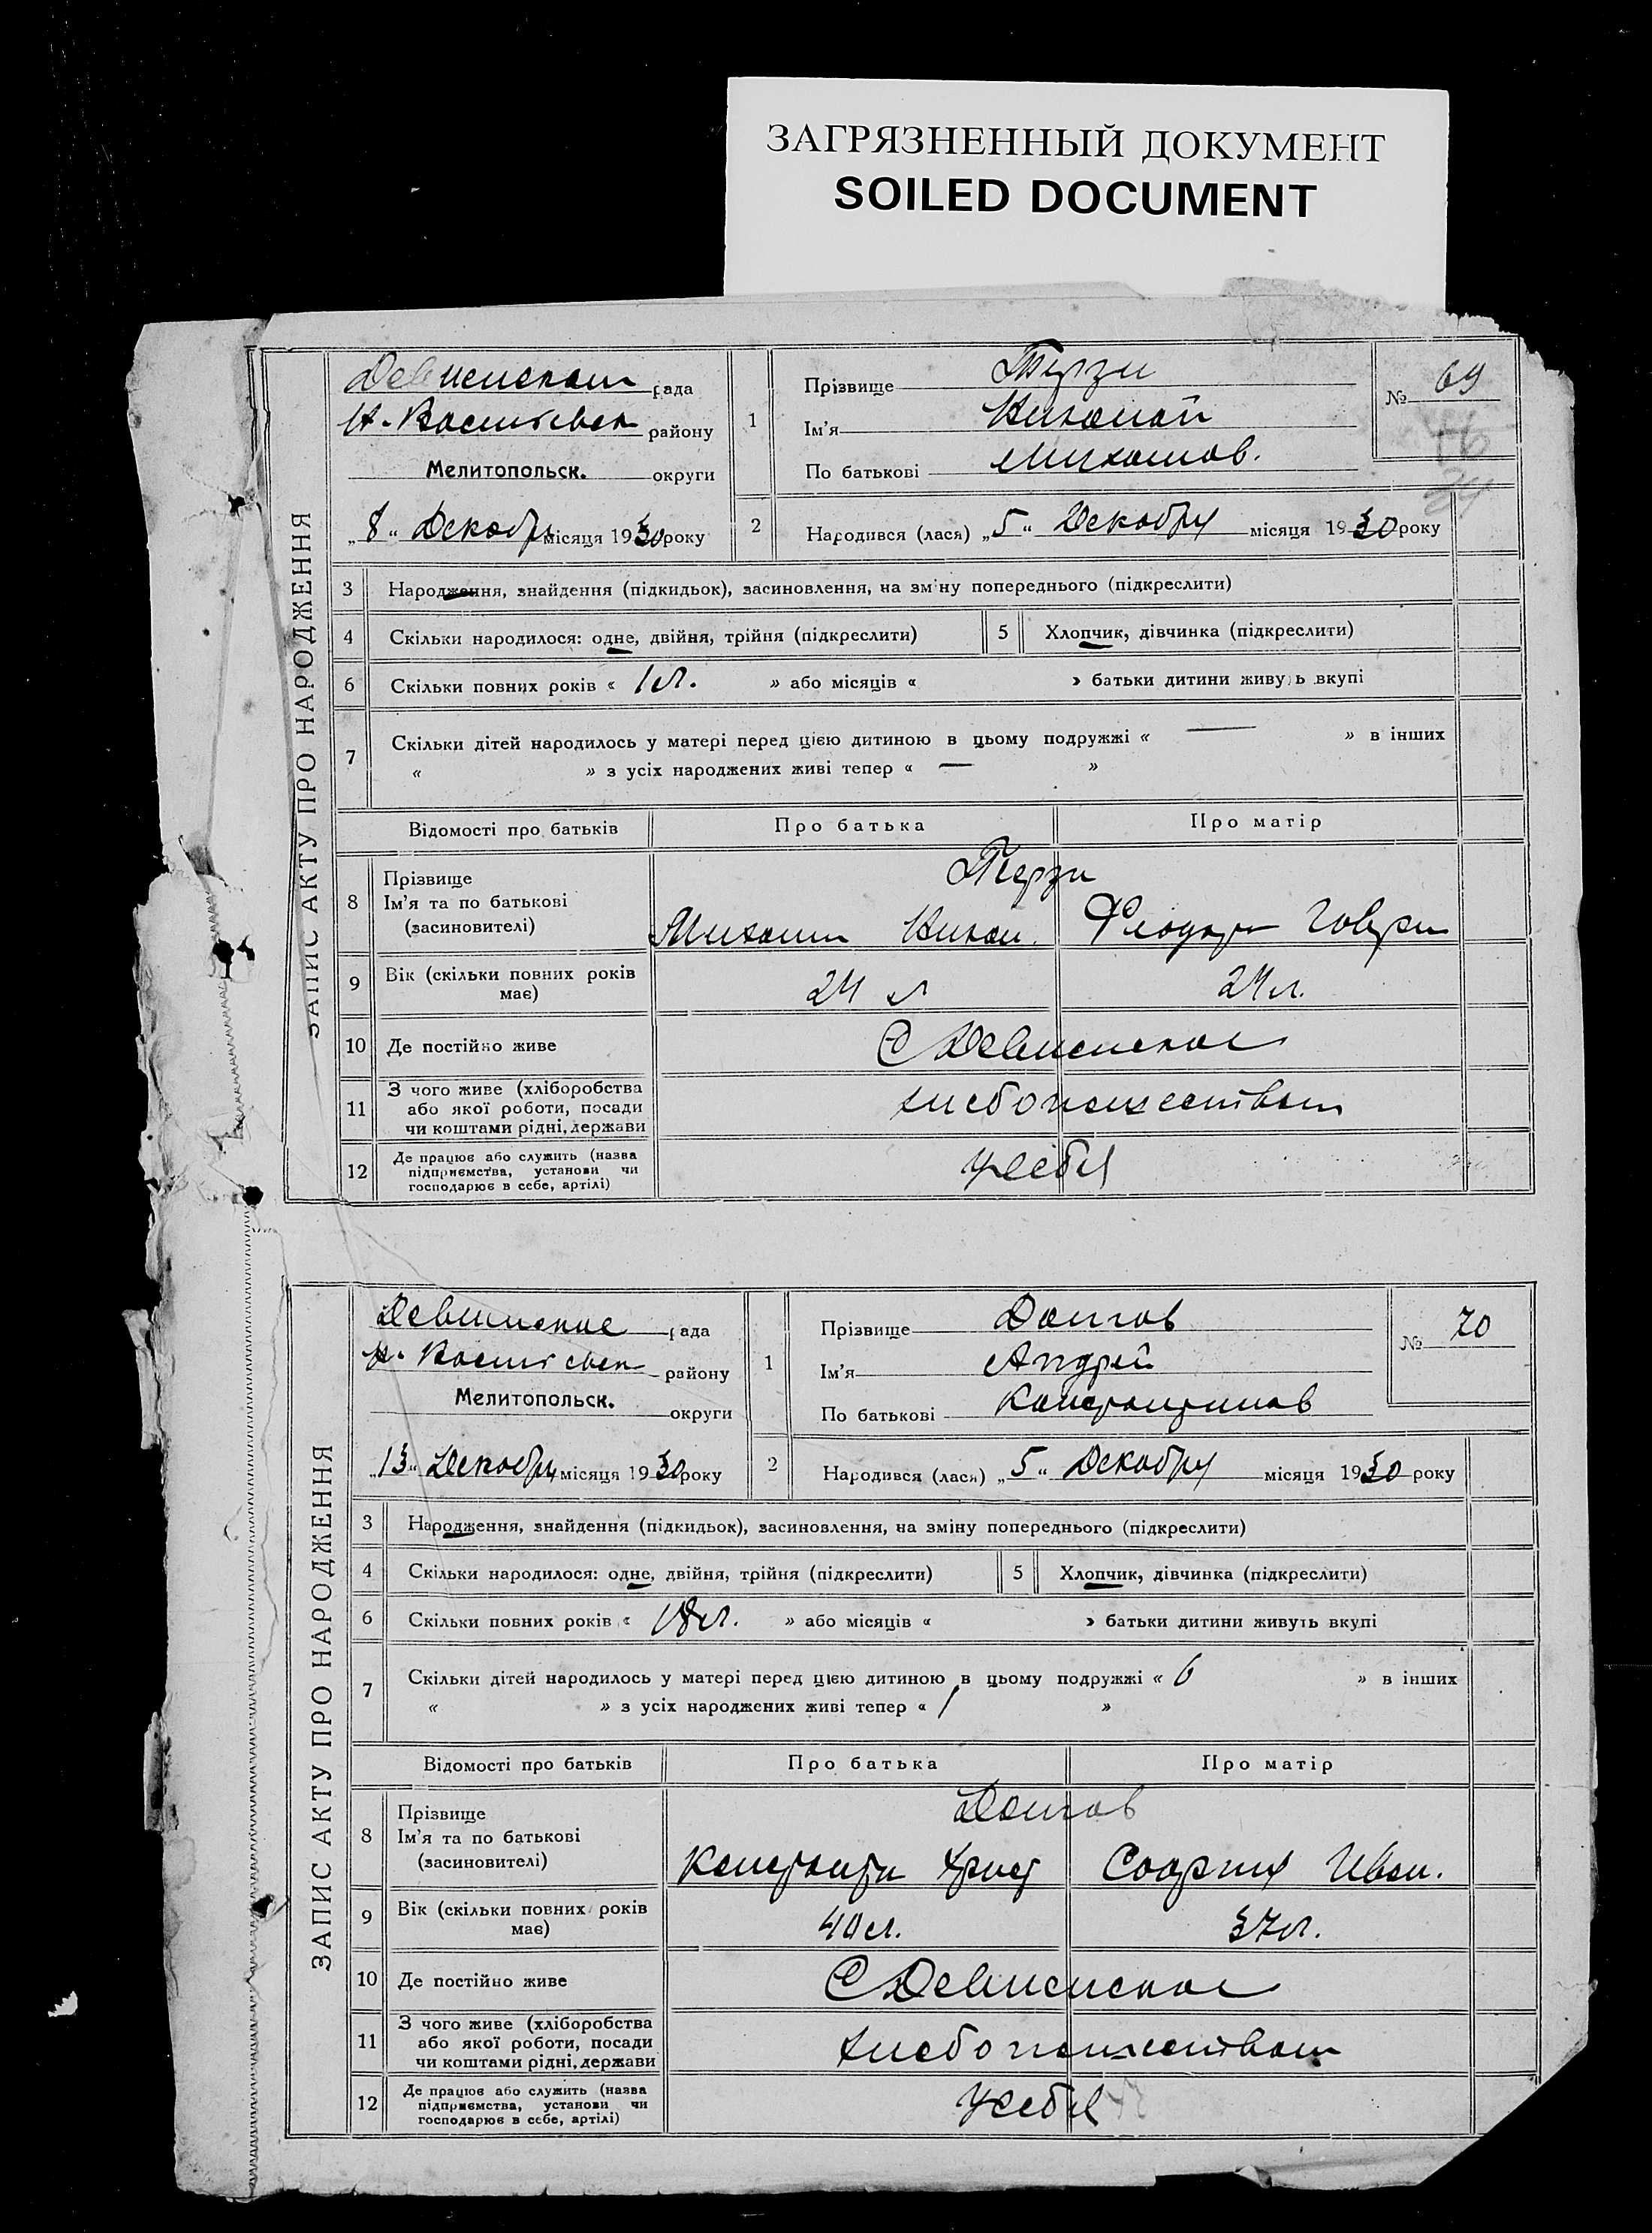 ЗАГРЯЗНЕННЫЙ ДОКУМЕНТ
SOILED DOCUMENT
ЗАПИС АКТУ ПРО НАРОДЖЕННЯ
Девненском рада
Н-Васильевск району
Мелитопольск. округи
„8“ Декабря місяця 1930 року
1
Прізвище Терзи
Ім'я Николай
По батькові Михайлов.
№ 69
2
Народився (лася) „5“ Декабря місяця 1930 року
3 Народження, знайдення (підкидьок), засиновлення, на зміну попереднього (підкреслити)
4 Скільки народилося: одне, двійня, трійня (підкреслити) 5 Хлопчик, дівчинка (підкреслити)
6 Скільки повних років « 1 л. » або місяців « » батьки дитини живуть вкупі
7 Скільки дітей народилось у матері перед цією дитиною в цьому подружжі « — » в інших
« » з усіх народжених живі тепер « — »
Відомості про батьків Про батька Про матір
8 Прізвище Терзи
Ім'я та по батькові
(засиновителі) Михаил Никол.
9 Вік (скільки повних років має) 24 л 24 л.
10 Де постійно живе С Девненское
11 З чого живе (хліборобства
або якої роботи, посади
чи коштами рідні, держави хлебопашеством
12 Де працює або служить (назва
підприємства, установи чи
господарює в себе, артілі) У себя
ЗАПИС АКТУ ПРО НАРОДЖЕННЯ
Девненское рада
Н. Васильевск району
Мелитопольск. округи
„13“ Декабря місяця 1930 року
1
Прізвище Долгов
Ім'я Андрей
По батькові Константинов
№ 70
2
Народився (лася) „5“ Декабря місяця 1930 року
3 Народження, знайдення (підкидьок), засиновлення, на зміну попереднього (підкреслити)
4 Скільки народилося: одне, двійня, трійня (підкреслити) 5 Хлопчик, дівчинка (підкреслити)
6 Скільки повних років « 18 л. » або місяців « » батьки дитини живуть вкупі
7 Скільки дітей народилось у матері перед цією дитиною в цьому подружжі « 6 » в інших
« » з усіх народжених живі тепер « 1 »
Відомості про батьків Про батька Про матір
8 Прізвище Долгов
Ім'я та по батькові
(засиновителі) Константин Христ Иван.
9 Вік (скільки повних років має) 40 л. 37 л.
10 Де постійно живе С Девненское
11 З чого живе (хліборобства
або якої роботи, посади
чи коштами рідні, держави хлебопашеством
12 Де працює або служить (назва
підприємства, установи чи
господарює в себе, артілі) У себя